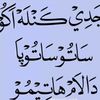 جَدِيْ كَنْلَهْ اَكُوْ
سَاتُوْ سَاتُوْيَا
دَالَامْ هَاتِيْمُوْ